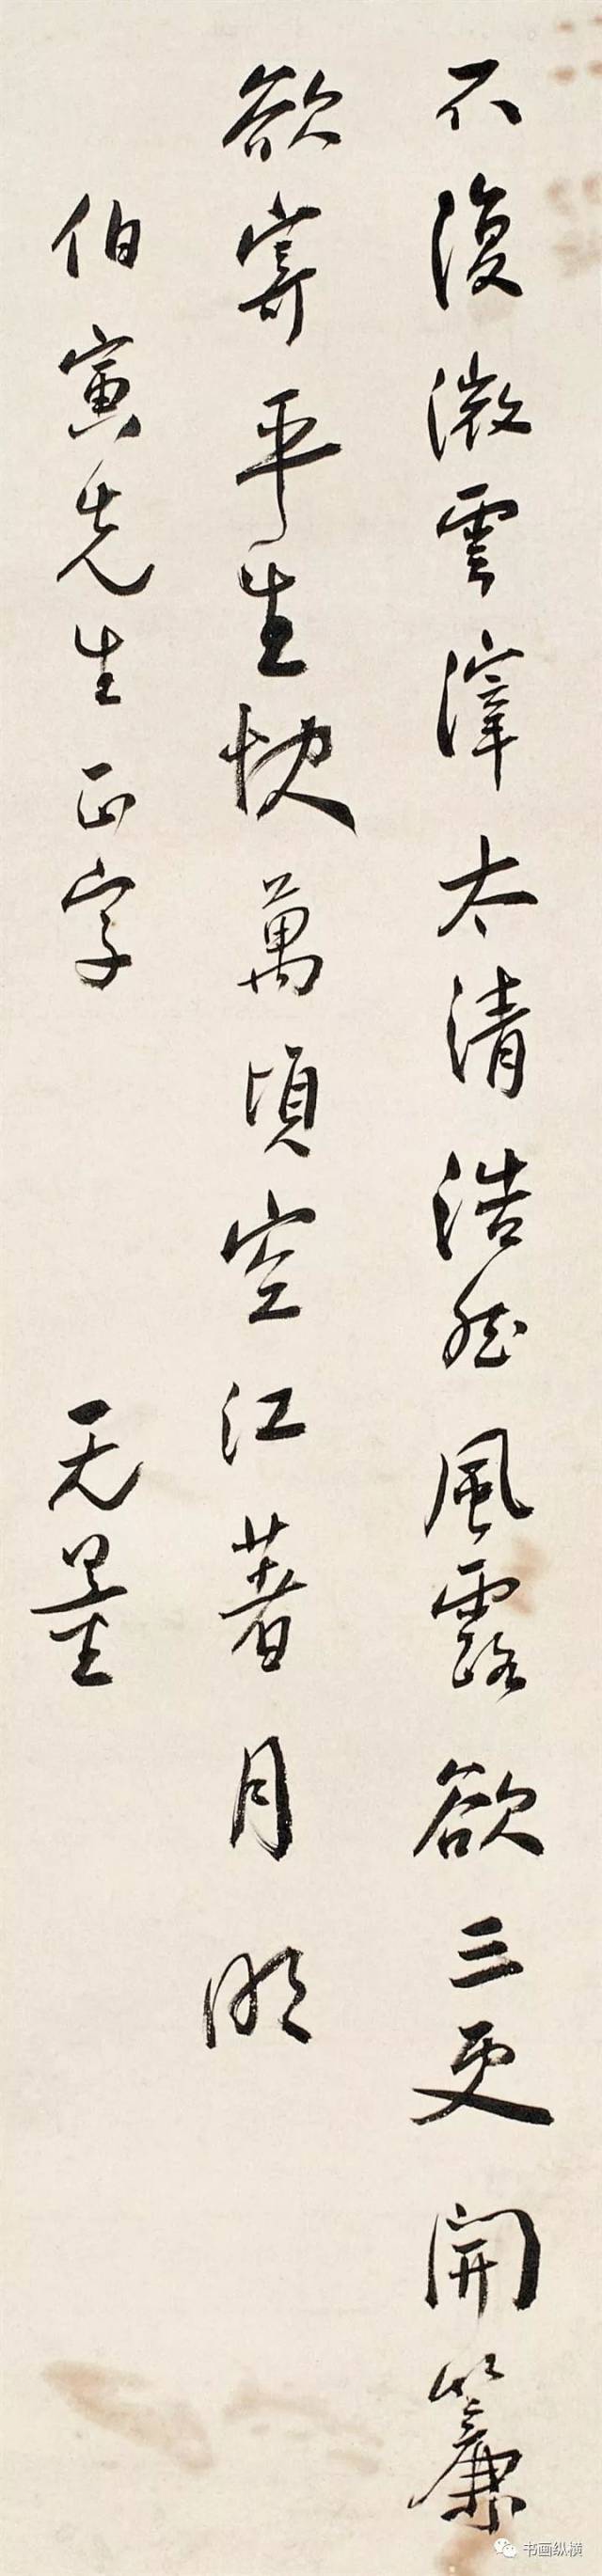 不復微雲滓太清浩然風露欲三更開簾
欲寄平生快萬頃空江著月明
伯寅先生正字
无量
书画纵横